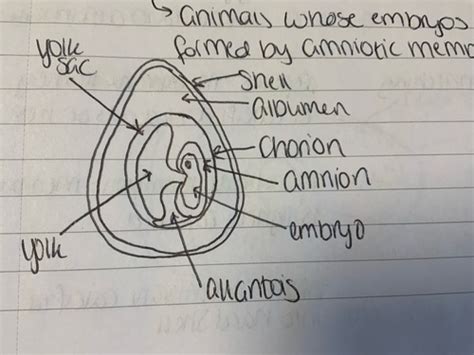 ↳ animals whose embryos
formed by amniotic mem
yolk
sac
shell
albumen
chorion
amnion
embryo
yolk
allantois